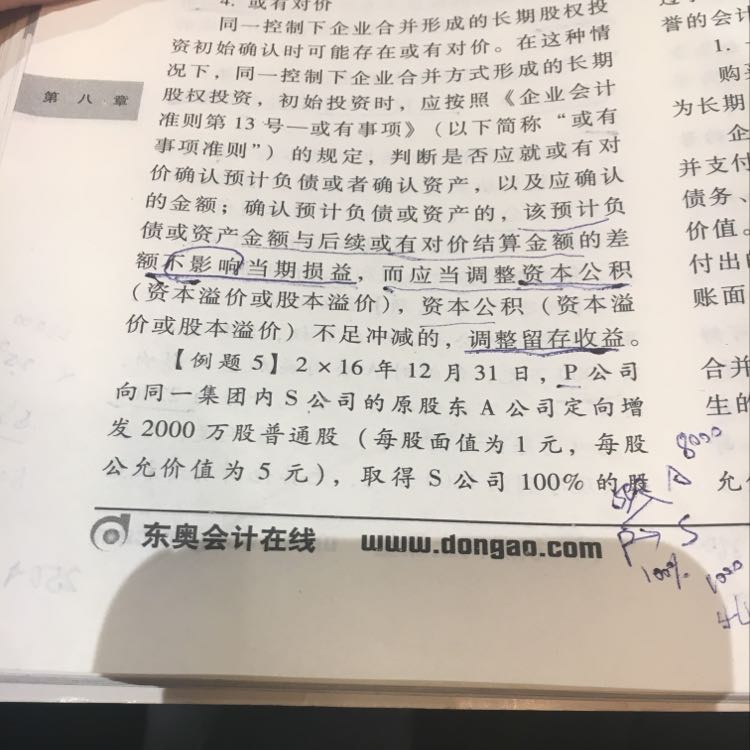 4. 或有对价
同一控制下企业合并形成的长期股权投
资初始确认时可能存在或有对价。在这种情
况下，同一控制下企业合并方式形成的长期
股权投资，初始投资时，应按照《企业会计
准则第 13 号—或有事项》（以下简称“或有
事项准则”）的规定，判断是否应就或有对
价确认预计负债或者确认资产，以及应确认
的金额；确认预计负债或资产的，该预计负
债或资产金额与后续或有对价结算金额的差
额不影响当期损益，而应当调整资本公积
（资本溢价或股本溢价），资本公积（资本溢
价或股本溢价）不足冲减的，调整留存收益。
【例题 5】2×16 年 12 月 31 日，P 公司
向同一集团内 S 公司的原股东 A 公司定向增
发 2000 万股普通股（每股面值为 1 元，每股
公允价值为 5 元），取得 S 公司 100% 的股
第 八 章
东奥会计在线 www.dongao.com
誉的会计
1.
购买
为长期
企
并支付
债务、
价值。
付出的
账面
合并
生的
允
8000
P→S
100%
1000